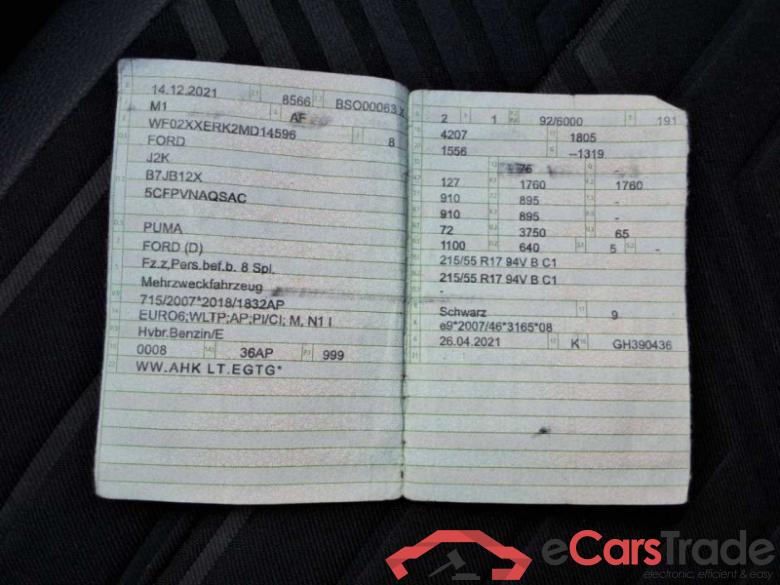 14.12.2021 8566 BSO00063 X
M1 AF
WF02XXERK2MD14596 8
FORD
J2K
B7JB12X
5CFPVNAQSAC
PUMA
FORD (D)
Fz.z,Pers.bef.b. 8 Spl.
Mehrzweckfahrzeug
715/2007*2018/1832AP
EURO6;WLTP;AP;PI/CI; M, N1 I
Hybr.Benzin/E
0008 36AP 999
WW.AHK LT.EGTG*
2 1 92/6000 191
4207 1805
1556 --1319
-
127 1760 1760
910 895 -
910 895 -
72 3750 65
1100 640 5 -
215/55 R17 94V B C1
215/55 R17 94V B C1
-
Schwarz 9
e9*2007/46*3165*08
26.04.2021 K GH390436
eCarsTrade
electronic, efficient & easy